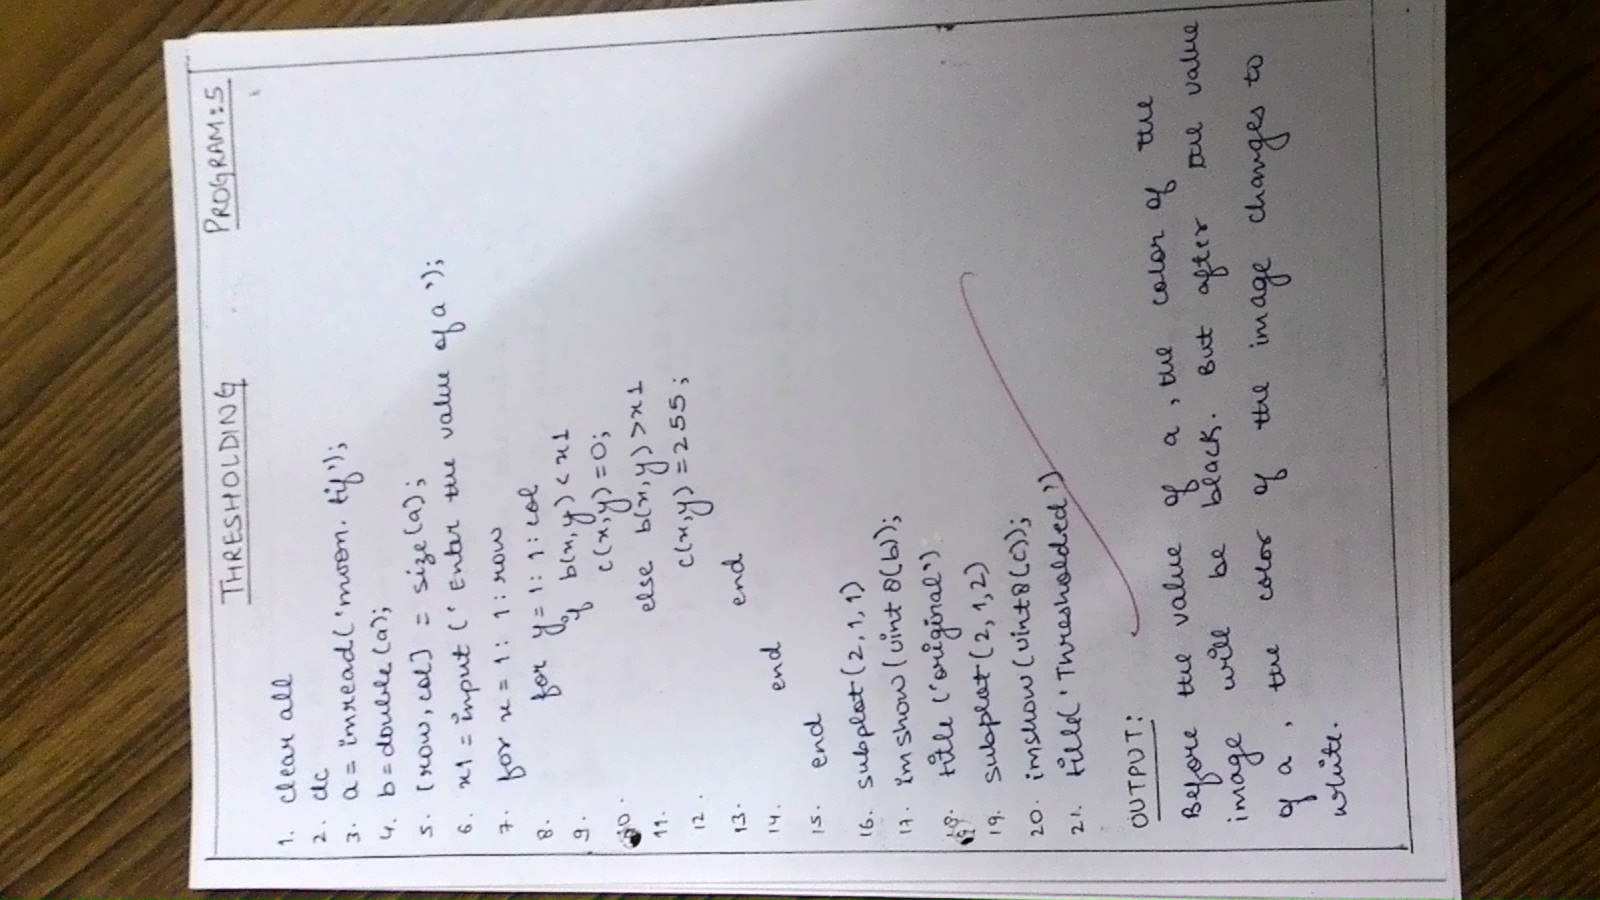 THRESHOLDING PROGRAM: 5
1. clear all
2. clc
3. a = imread('moon.tif');
4. b = double(a);
5. [row, col] = size(a);
6. x1 = input('Enter the value of a');
7. for x = 1: 1: row
8. for y = 1: 1: col
9. if b(x,y) < x1
10. c(x,y) = 0;
11. else b(x,y) > x1
12. c(x,y) = 255;
13. end
14. end
15. end
16. subplot(2,1,1)
17. imshow(uint8(b));
18. title('original')
19. subplot(2,1,2)
20. imshow(uint8(c));
21. title('Thresholded')
OUTPUT:
Before the value of a, the color of the
image will be black. But after the value
of a, the color of the image changes to
white.